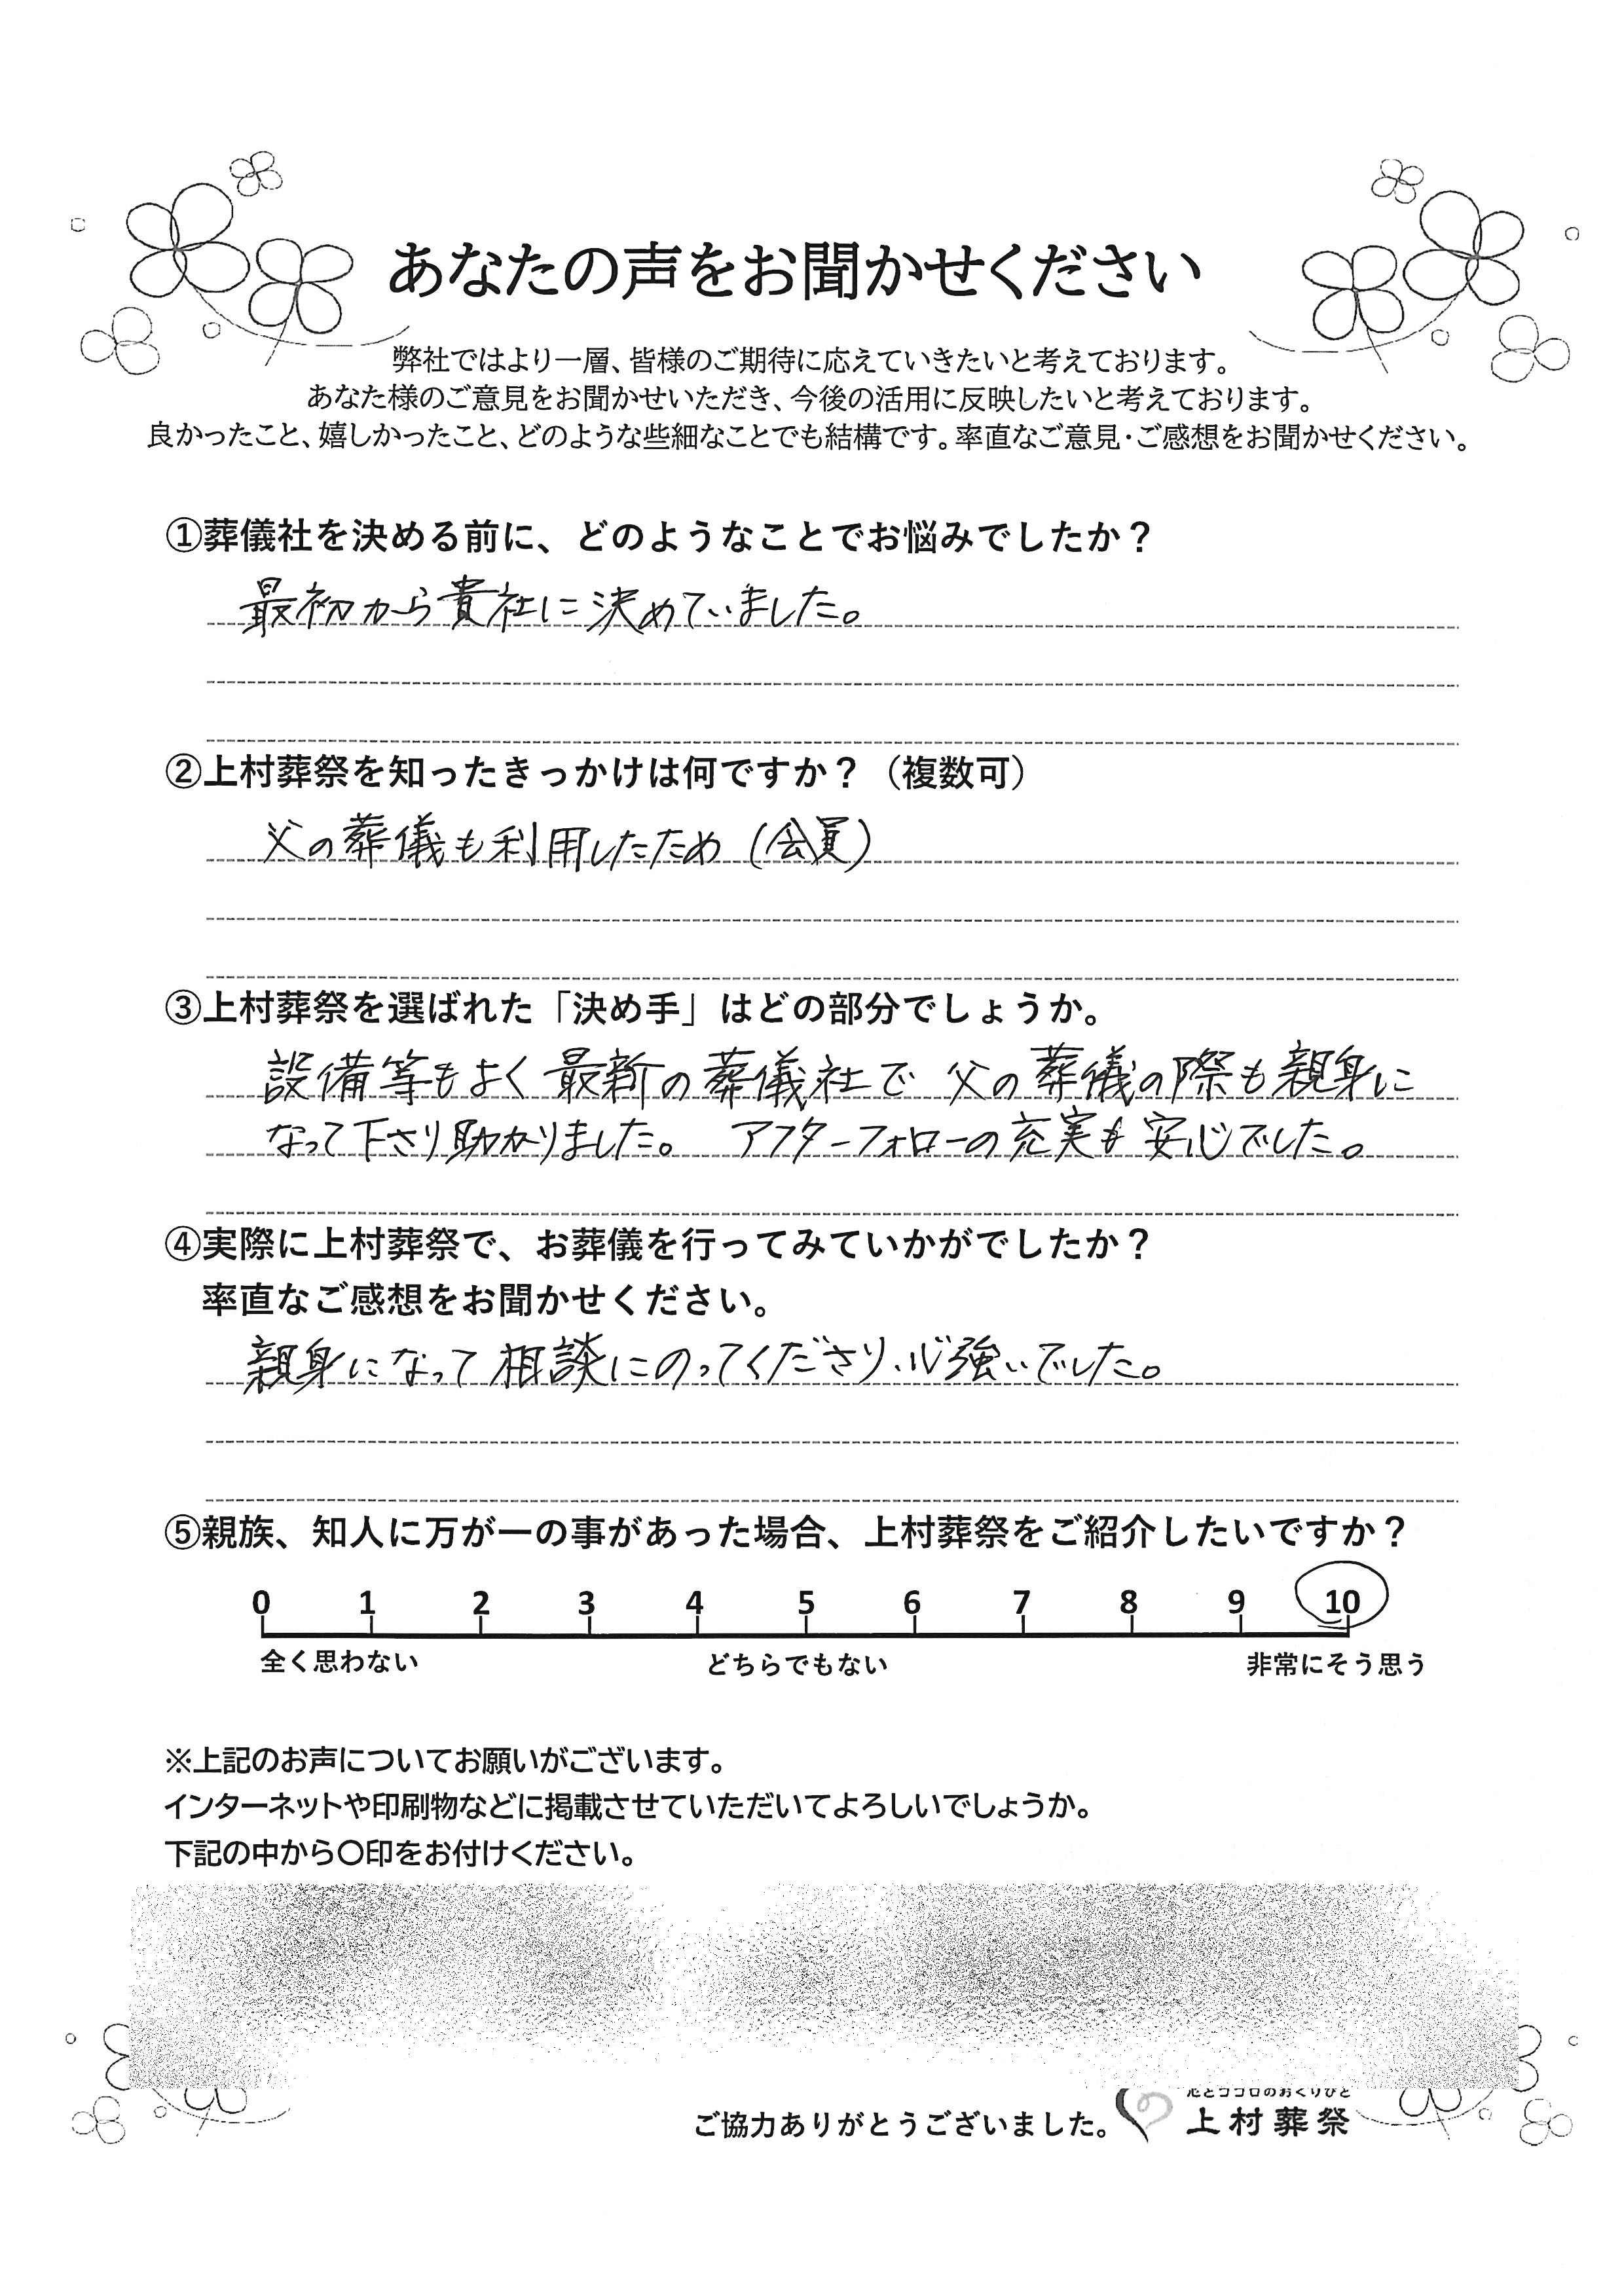 あなたの声をお聞かせください
弊社ではより一層、皆様のご期待に応えていきたいと考えております。
あなた様のご意見をお聞かせいただき、今後の活用に反映したいと考えております。
良かったこと、嬉しかったこと、どのような些細なことでも結構です。率直なご意見・ご感想をお聞かせください。
①葬儀社を決める前に、どのようなことでお悩みでしたか？
最初から貴社に決めていました。
②上村葬祭を知ったきっかけは何ですか？（複数可）
父の葬儀も利用したため（会員）
③上村葬祭を選ばれた「決め手」はどの部分でしょうか。
設備等もよく最新の葬儀社で 父の葬儀の際も親身に
なって下さり助かりました。 アフターフォローの充実も安心でした。
④実際に上村葬祭で、お葬儀を行ってみていかがでしたか？
率直なご感想をお聞かせください。
親身になって相談にのってくださり、心強いでした。
⑤親族、知人に万が一の事があった場合、上村葬祭をご紹介したいですか？
0 1 2 3 4 5 6 7 8 9 10
全く思わない どちらでもない 非常にそう思う
※上記のお声についてお願いがございます。
インターネットや印刷物などに掲載させていただいてよろしいでしょうか。
下記の中から〇印をお付けください。
心とココロのおくりびと
ご協力ありがとうございました。 上村葬祭